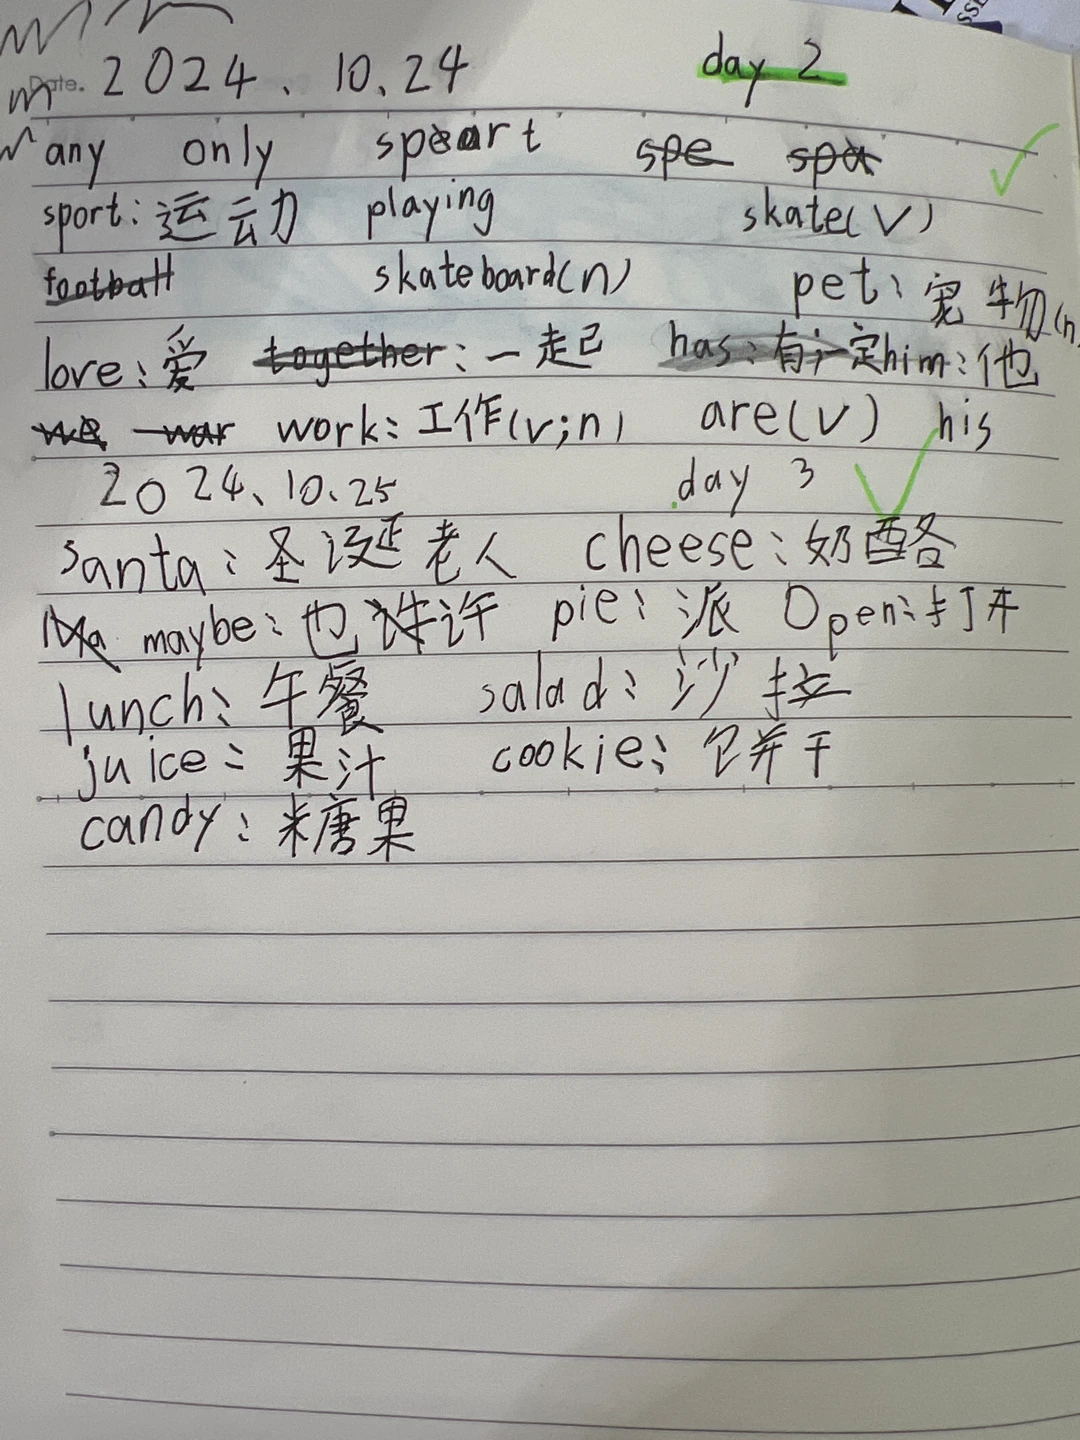 Date. 2024. 10.24 day 2
any only spart spe spa
sport: 运动 playing skate(v)
football skateboard(n) pet: 宠物(n
love: 爱 together: 一起 has: 有; 一定 him: 他
we war work: 工作(v;n) are(v) his
2024、10.25 day 3
santa: 圣诞老人 cheese: 奶酪
Ma maybe: 也许 pie: 派 Open: 打开
lunch: 午餐 salad: 沙拉
juice: 果汁 cookie: 饼干
candy: 糖果